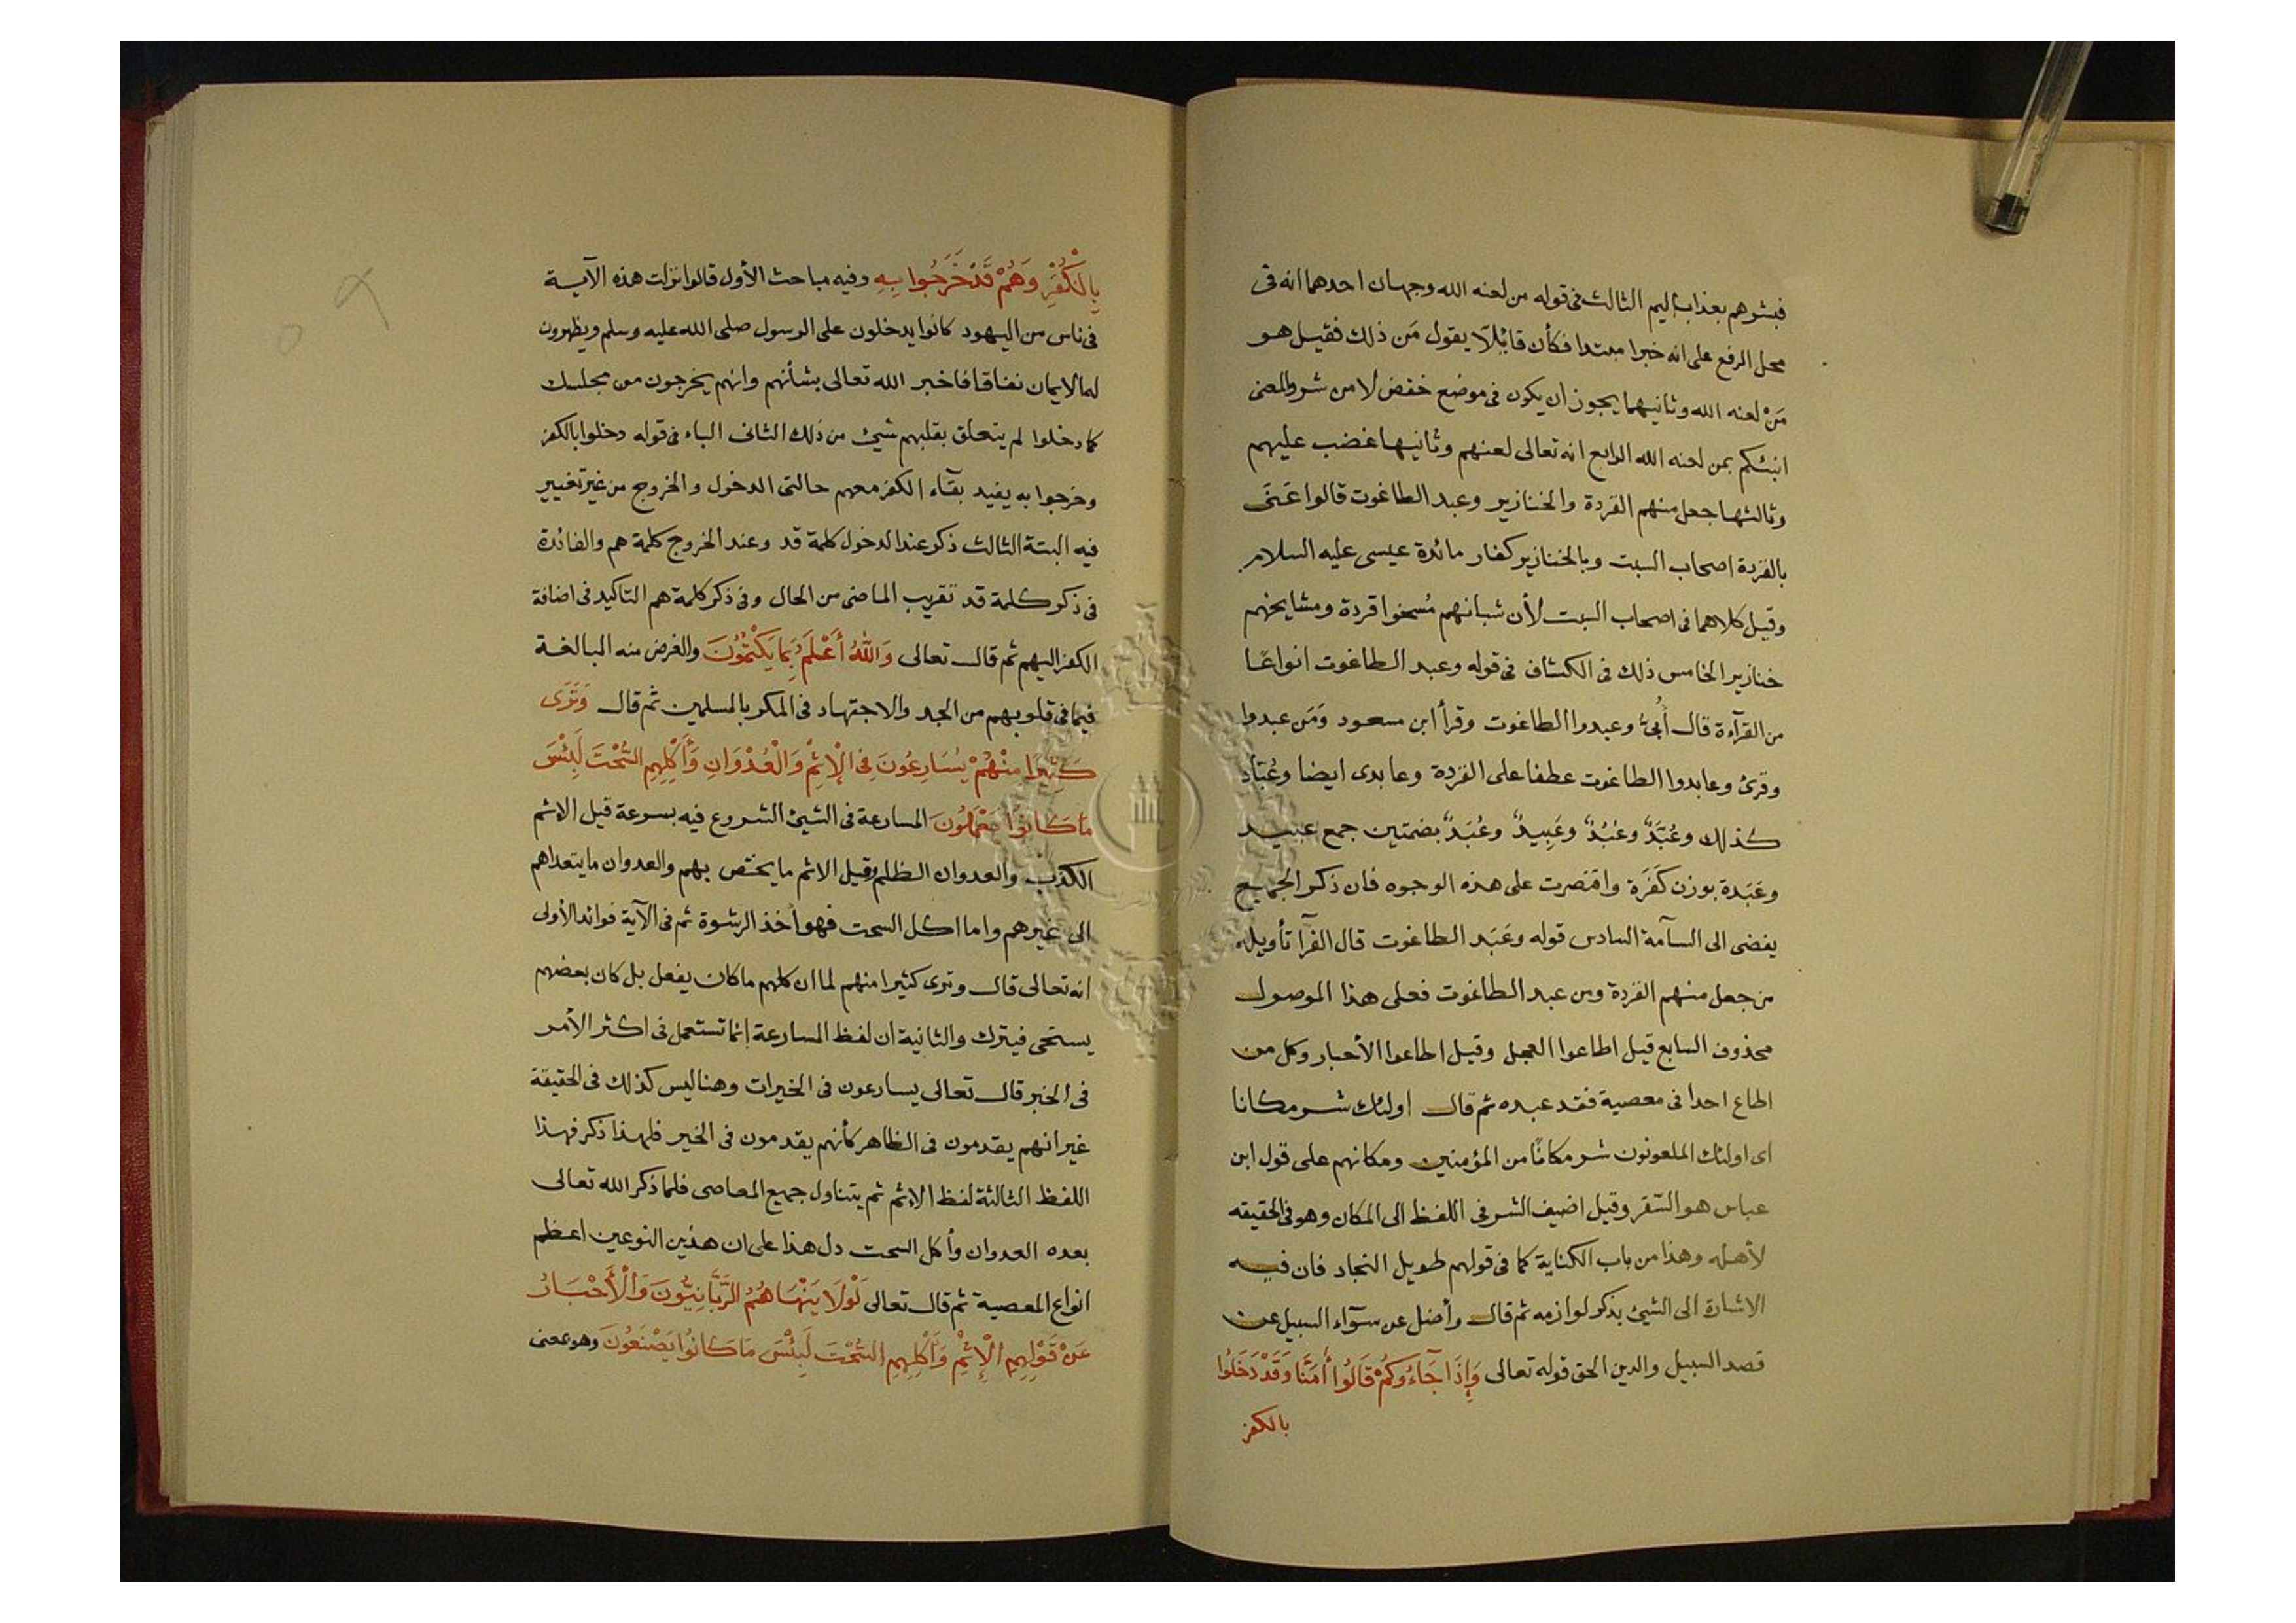 فبشرهم بعذاب اليم الثالث فى قوله من لعنه الله وجهان احدهما انه فى
محل الرفع على انه خبرا مبتدا فكأن قائلا يقول مَن ذلك فقيل هو
مَنْ لعنه الله وثانيهما يجوز ان يكون فى موضع خفض لا من شر والمعنى
انبئكم بمن لعنه الله الرابع انه تعالى لعنهم وثانيها غضب عليهم
وثالثها جعل منهم القردة والخنازير وعبد الطاغوت قالوا عَنَى
بالقردة اصحاب السبت وبالخنازير كفار مائدة عيسى عليه السلام
وقيل كلاهما فى اصحاب السبت لأن شبانهم مُسخوا قردة ومشايخهم
خنازير الخامس ذلك فى الكشاف فى قوله وعبد الطاغوت انواعًا
من القرآءة قال أُبىّ وعبدوا الطاغوت وقرأ ابن مسعود وَمَن عبدوا
وقرئ وعابدوا الطاغوت عطفا على القردة وعابدى ايضا وعُبَّاد
كذلك وعُبَّدٌ وعُبُدٌ وعَبِيدٌ وعُبُدٌ بضمتين جمع عبيد
وعَبَدة بوزن كَفَرَة واقتصرت على هذه الوجوه فان ذكر الجميع
يفضى الى السآمة السادس قوله وعَبَد الطاغوت قال الفرآ تأويله
من جعل منهم القردة ومن عبد الطاغوت فعلى هذا الموصول
محذوف السابع قيل اطاعوا العجل وقيل اطاعوا الأحبار وكل من
اطاع احدا فى معصية فقد عبده ثم قال اولئك شر مكانا
اى اولئك الملعونون شر مكانًا من المؤمنين ومكانهم على قول ابن
عباس هو السّقر وقيل اضيف الشر فى اللفظ الى المكان وهو فى الحقيقه
لأهله وهذا من باب الكناية كما فى قولهم طويل النجاد فان فيه
الاشارة الى الشيئ بذكر لوازمه ثم قال وأضل عن سوآء السبيل عن
قصد السبيل والدين الحق قوله تعالى وَإِذَا جَآءُوكُمْ قَالُوا أٰمَنَّا وَقَدْ دَخَلُوا
بالكفر
بِالْكُفْرِ وَهُمْ قَدْ خَرَجُوا بِهِ وفيه مباحث الأول قالوا نزلت هذه الآية
فى ناس من اليهود كانوا يدخلون على الرسول صلى الله عليه وسلم ويظهرون
له الايمان نفاقا فاخبر الله تعالى بشأنهم وانهم يخرجون من مجلسك
كما دخلوا لم يتعلق بقلبهم شيئ من ذلك الثانى الباء فى قوله دخلوا بالكفر
وخرجوا به يفيد بقآء الكفر معهم حالتى الدخول والخروج من غير تغيير
فيه البتة الثالث ذكر عند الدخول كلمة قد وعند الخروج كلمة هم والفائدة
فى ذكر كلمة قد تقريب الماضى من الحال وفى ذكر كلمة هم التاكيد فى اضافة
الكفر اليهم ثم قال تعالى وَاللّٰهُ أَعْلَمُ بِمَا يَكْتُمُونَ والغرض منه المبالغة
فيما فى قلوبهم من الجد والاجتهاد فى المكر بالمسلمين ثم قال وَتَرَى
كَثِيرًا مِنْهُمْ يُسَارِعُونَ فِى الْإِثْمِ وَالْعُدْوَانِ وَأَكْلِهِمِ السُّحْتَ لَبِئْسَ
مَا كَانُوا يَعْمَلُونَ المسارعة فى الشيئ الشروع فيه بسرعة قيل الاثم
الكذب والعدوان الظلم وقيل الاثم ما يختص بهم والعدوان ما يتعداهم
الى غيرهم واما اكل السحت فهو أخذ الرشوة ثم فى الآية فوائد الأولى
انه تعالى قال وترى كثيرا منهم لما ان كلهم ما كان يفعل بل كان بعضهم
يستحى فيترك والثانية ان لفظ المسارعة إنما تستعمل فى اكثر الأمر
فى الخير قال تعالى يسارعون فى الخيرات وهنا ليس كذلك فى الحقيقة
غير انهم يقدمون فى الظاهر كأنهم يقدمون فى الخير فلهذا ذكر فهذا
اللفظ الثالثة لفظ الاثم ثم يتناول جميع المعاصى فلما ذكر الله تعالى
بعده العدوان وأكل السحت دل هذا على ان هذين النوعين اعظم
انواع المعصية ثم قال تعالى لَوْلَا يَنْهَاهُمُ الرَّبَّانِيُّونَ وَالْأَحْبَارُ
عَنْ قَوْلِهِمِ الْإِثْمَ وَأَكْلِهِمِ السُّحْتَ لَبِئْسَ مَا كَانُوا يَصْنَعُونَ وهو بمعنى